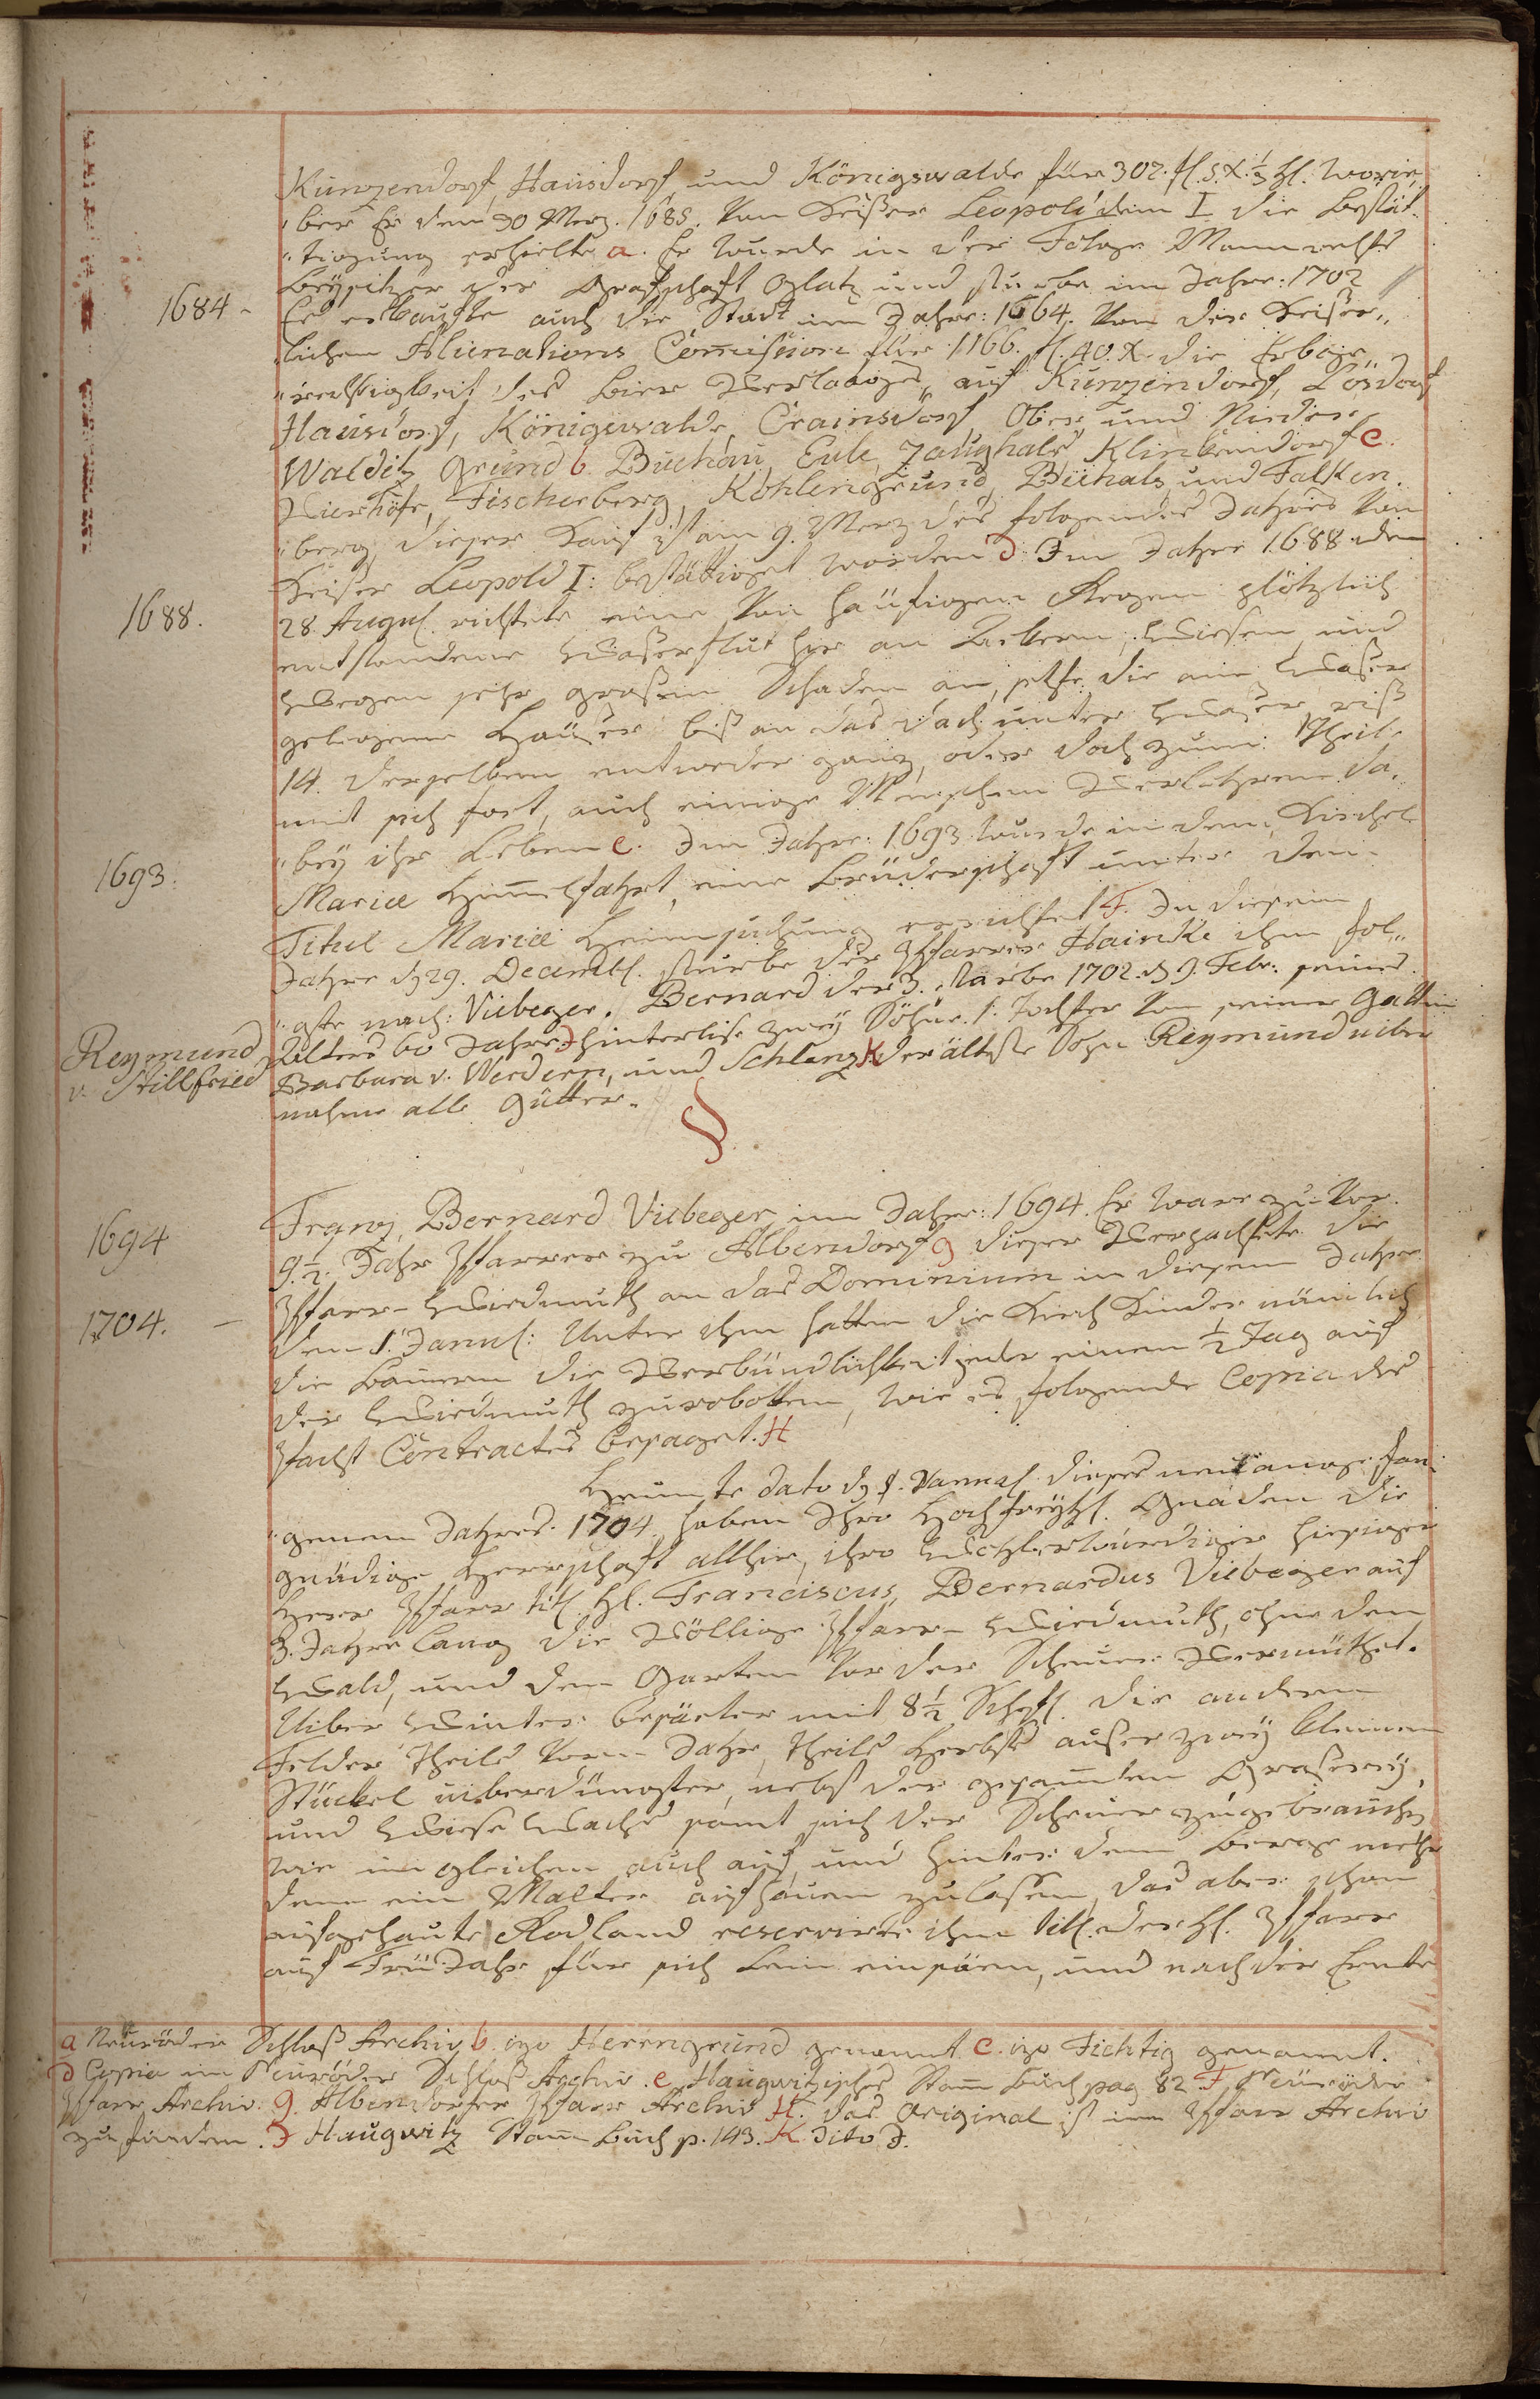 Kunzendorf, Hausdorf, und Königswalde für 302. fl. 5. X. ⅓ hl. worie„
„ber Er dem 30 Merz. 1685. von Keißer Leopold dem I die Bestät„
„tigung erhielte a. Er wurde in der Folge Mannrechts
Beysitzer der Grafschaft Glatz und sturbe im Jahre: 1702
1684 -
Er erkaufte auch die Stadt im Jahre: 1664. von der Keißer„
lichen Alienations Com̅ission für 1166. fl. 40. X. die Erbge„
„rechtigkeit des Bier Verlaages, auf Kunzendorf,
Hausdorf, Königswalde, Crainsdorf, Ober und Nieder
Walditz Grund b. Buchau, Eule, Zaughals, Klinkendorf c.
Vierhöfe, Fischerberg, Kohlengrund, Biehals und Falken„
„berg, dieser Kauf ist am 9. Merz des folgendes Jahres von
Keiser Leopold I: bestättiget worden d. Im Jahre 1688 den
1688.
28 August. richtete eine von häufigen Regen plötzlich
entstandene Waßerfluth hir an Äckern, Wiesen, und
Weegen sehr großen Schaden an, setzte die am Waßer
gelegene Haüßer biß an das Dach unter Waßer, riß
14. derselben entweder ganz, oder doch zum Theil
mit sich fort, auch einige Menschen verlohren da„
„bey ihr Leben e. Im Jahre: 1693 wurde in dem Kirchel
1693:
Mariæ Him̅elfahrt, eine Bruderschaft unter dem
Titul Mariæ Heimsuchung errichtet F. In diesem
Jahre d 29. Decembl. sturbe der Pfarrer Haincke ihm fol„
„gte nach: Viebeger. Bernard der 3. starbe 1702. d 9. Febr: seines
Reymund
v. Stillfried
Alters 60 Jahre J hinterliße zwey Söhne. 1. Tochter von seiner Gattin
Barbara v. Werdern, und Schlanz K der älteste Sohn Reymund uiber
nahme alle Gütter.
§
1694
Franz, Bernard Viebeger im Jahre: 1694. Er ware zuvor
9. ½. Jahr Pfarrer zu Albendorf g dieser verpachtete die
Pfarr- Wiedmuth an das Dominium in diesem Jahre
1704. -
den 1. Janul: Unter ihm hatten die Kirch Kinder nämlich
die Bauern die Verbündlichkeit jeder einen ½ Tag auf
der Wiedmuth zurobotten, wie es folgende Copia des
Pacht Contractes besaget. H
Heunte dato d 1. Januar dieses neu angefan„
„genen Jahres. 1704. haben Ihro Hochfreyhl. Gnaden die
gnädige Herrschaft allhir, ihro Wohlerwürdiger hiesiger
Herr Pfarr titl. Hl. Franciscus, Bernardus Viebeger auf
3. Jahre lang die Völlige Pfarr- Wiedmuth, ohne den
Wald, und den Garten vor der Scheuer vermüthet.
Uiber Winter besäeter mit 8 ½ Schfl. die andern
Felder theils vorm Jahr, theils Herbst außer zwey kleinen
Stückel uiberdüngter, nebst der gesam̅ten Graßerey,
und Wiese Wachs samt sich der Scheuer zugebrauchen,
wie im gleichen auch auf und hinter dem Berge mehr
denn ein Malter aufhauen zulaßen, das aber schon
aufgehaute Rodland reservirte ihm titl. der Hl. Pfarr
auf Frü Jahr für sich Lein einsäen, und nach der Ernte
a Neuröder Schloß Archiv b. izo Herrngrund genannt. c. izo Fichtig genannt.
d Copia im Neuröder Schloß Archiv. e. Haugwizisches Stam̅ Buch pag 82. F Neuröder
Pfarr Archiv. g. Albendorfer Pfarr Archiv H. das Original ist im Pfarr Archiv
zu finden. J Haugwitz Stam̅ Buch p. 143. K dito J.